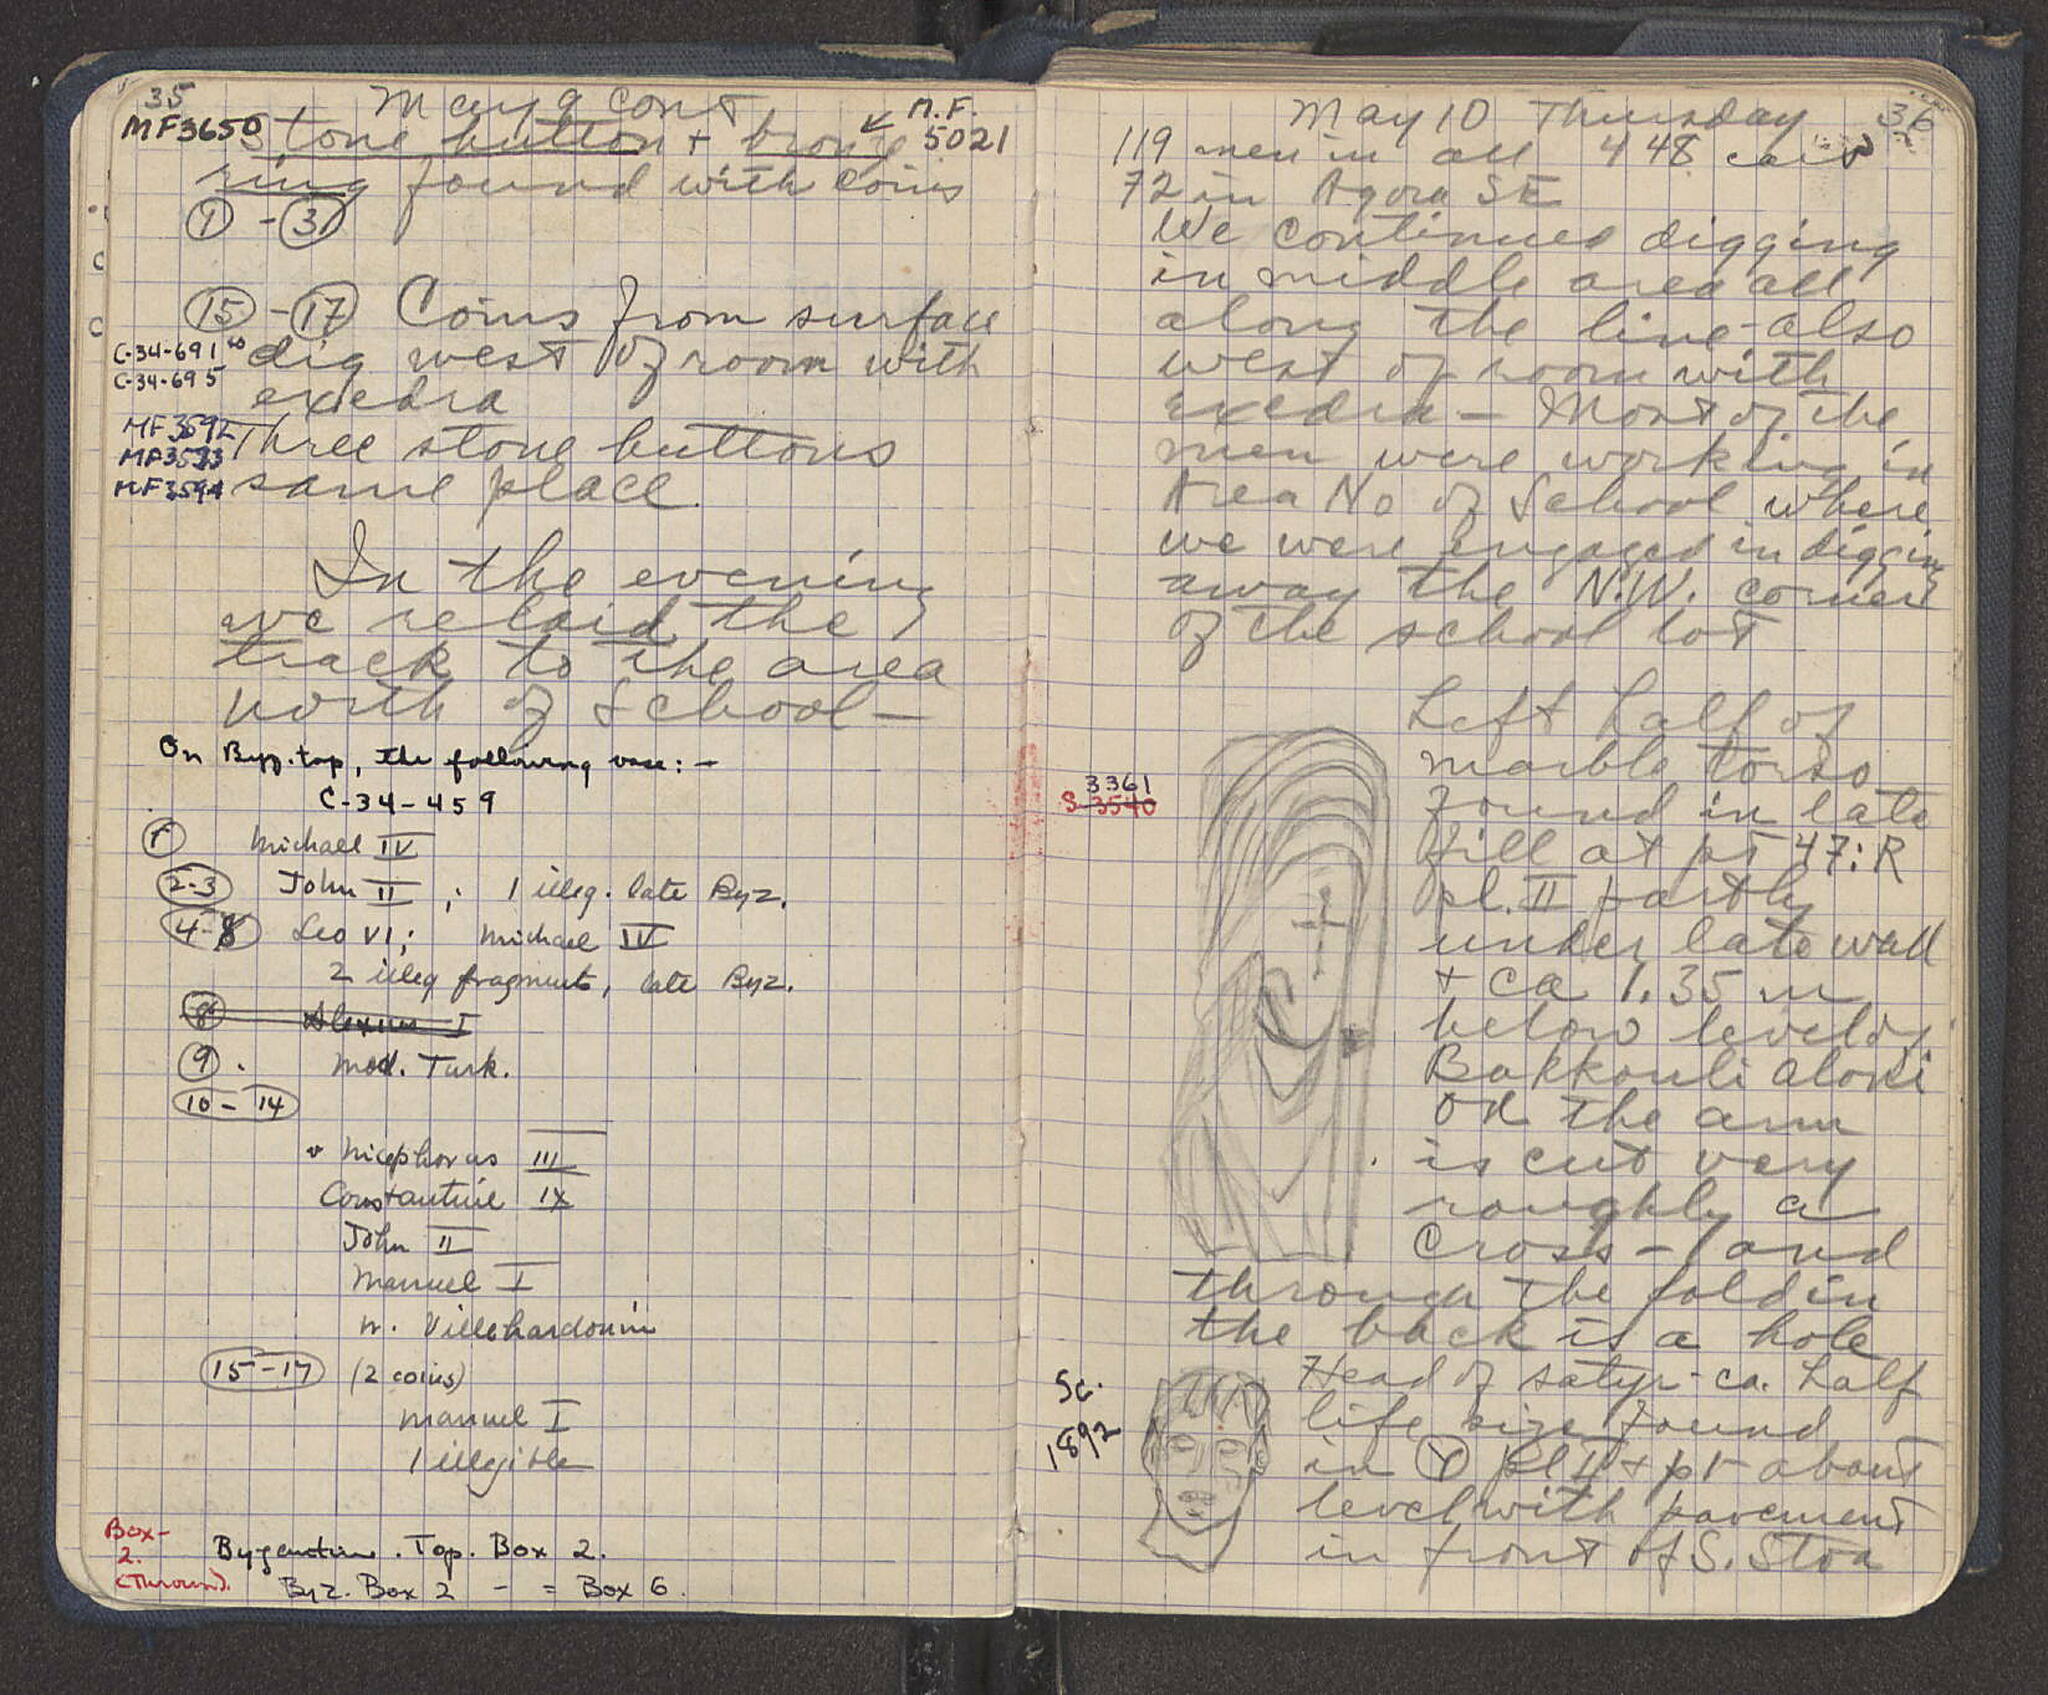 35
May 9 cont
MF3650 Stone button + bronze ↙ M.F. 5021
ring found with coins
① - ③①
⑮ - ⑰ Coins from surface
C-34-691 to
C-34-695
dig west of room with
exedra
MF 3592
MF 3593
MF 3594
Three stone buttons
same place.
In the evening
we relaid the
track to the area
north of School —
On Byz. top, the following vase: -
C-34-459
① Michael IV
2-3 John II ; 1 illeg. late Byz.
4-8 Leo VI; Michael IV
2 illeg fragments, late Byz.
8 Alexius I
9. Mod. Turk.
10 - 14
Nicephorus III
Constantine IX
John II
Manuel I
W. Villehardouin
15-17 (2 coins)
Manuel I
1 illegible
Box-
2.
Byzantine. Top. Box 2.
Byz. Box 2 - = Box 6.
May 10 Thursday 36
119 men in all 448 cars
72 in Agora SE
We continued digging
in middle area all
along the line - also
west of room with
exedra — Most of the
men were working in
Area No of School where
we were engaged in digging
away the N.W. corner
of the school lot
Left half of
marble torso
3361
S-3540
found in late
fill at pt 47:R
pl. II partly
under late wall
+ ca 1.35 m
below level of
Bakkouli aloni
On the arm
is cut very
roughly a
Cross - and
through the fold in
the back is a hole
Sc.
1892
Head of satyr - ca. half
life size found
in Ⓨ pl II + pt about
level with pavement
in front of S. Stoa